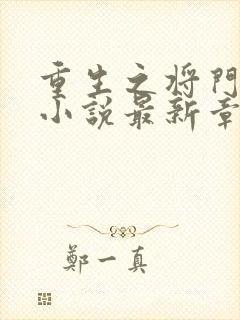 重生之将門
小説最新章
鄭一真